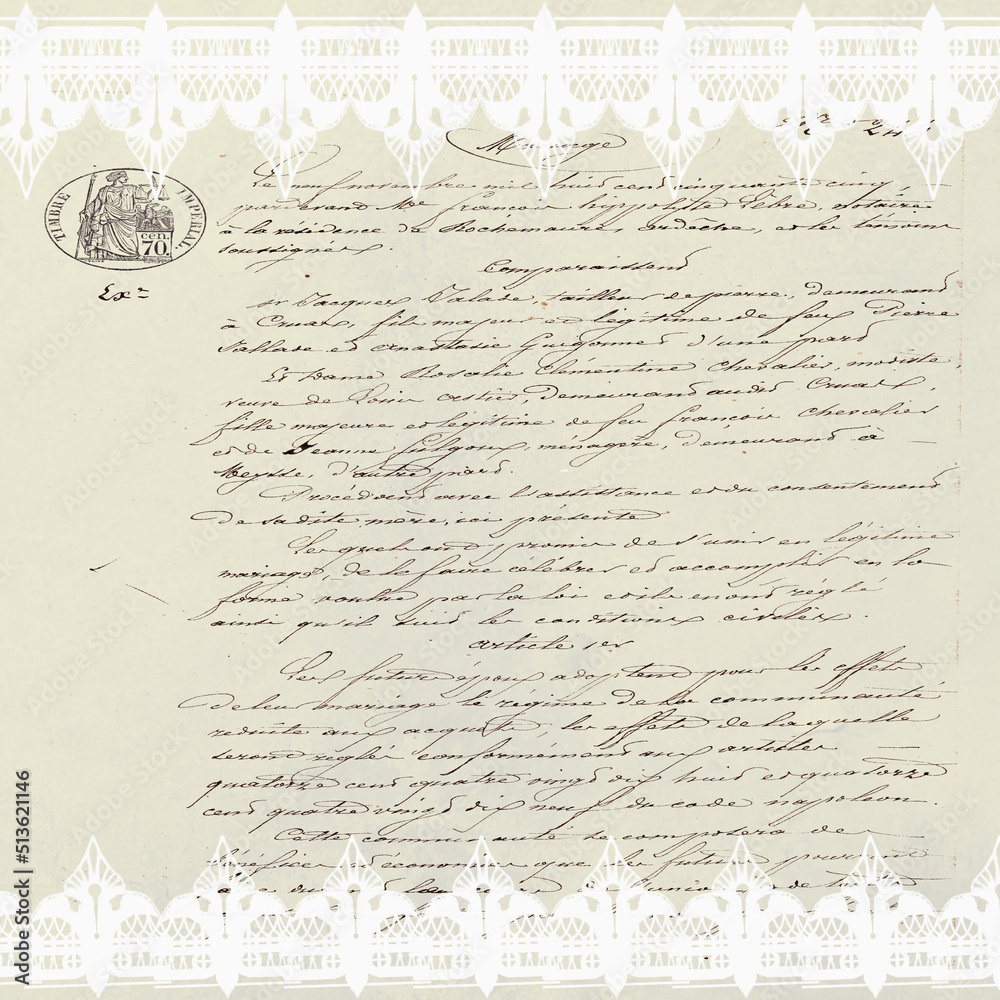 Mariage
TIMBRE IMPERIAL
CEN. 70.
Exre
Le neuf novembre mil huit cent cinquante cinq
pardevant Me françois hippolite febre, notaire
à la résidence de Rochemaure, ardèche, et les témoins
soussignés.
Comparaissent
sr Jacques Valade, tailleur de pierre, demeurant
à Cruas, fils majeur et légitime de feu Pierre
Vallade et anastasie Guigonnet d'une part
Et Dame Rosalie Clémentine Chevalier, modiste,
veuve de Louis astier, demeurant audit Cruas,
fille majeure et légitime de feu françois Chevalier
et de Jeanne ménagère, demeurant à
Meysse, d'autre part.
Procédant avec l'assistance et du consentement
de sa dite mère, ici présente
Lesquels ont promis de s'unir en légitime
mariage, de le faire célébrer et accomplir en la
forme voulue par la loi et ils en ont réglé
ainsi qu'il suit les conditions civiles.
article 1er
Les futurs époux adoptent pour les effets
de leur mariage le régime de la communauté
réduite aux acquets, les effets de laquelle
seront réglés conformément aux articles
quatorze cent quatre vingt dix huit et quatorze
cent quatre vingt dix neuf du code napoleon.
Cette communauté se composera des
bénéfices et économies que les futurs pourront
Adobe Stock | #513621146